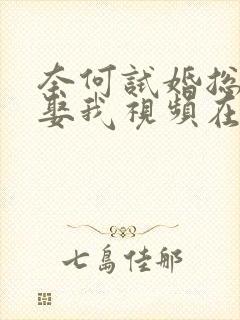 奈何試婚總
娶我視頻在
七島佳那